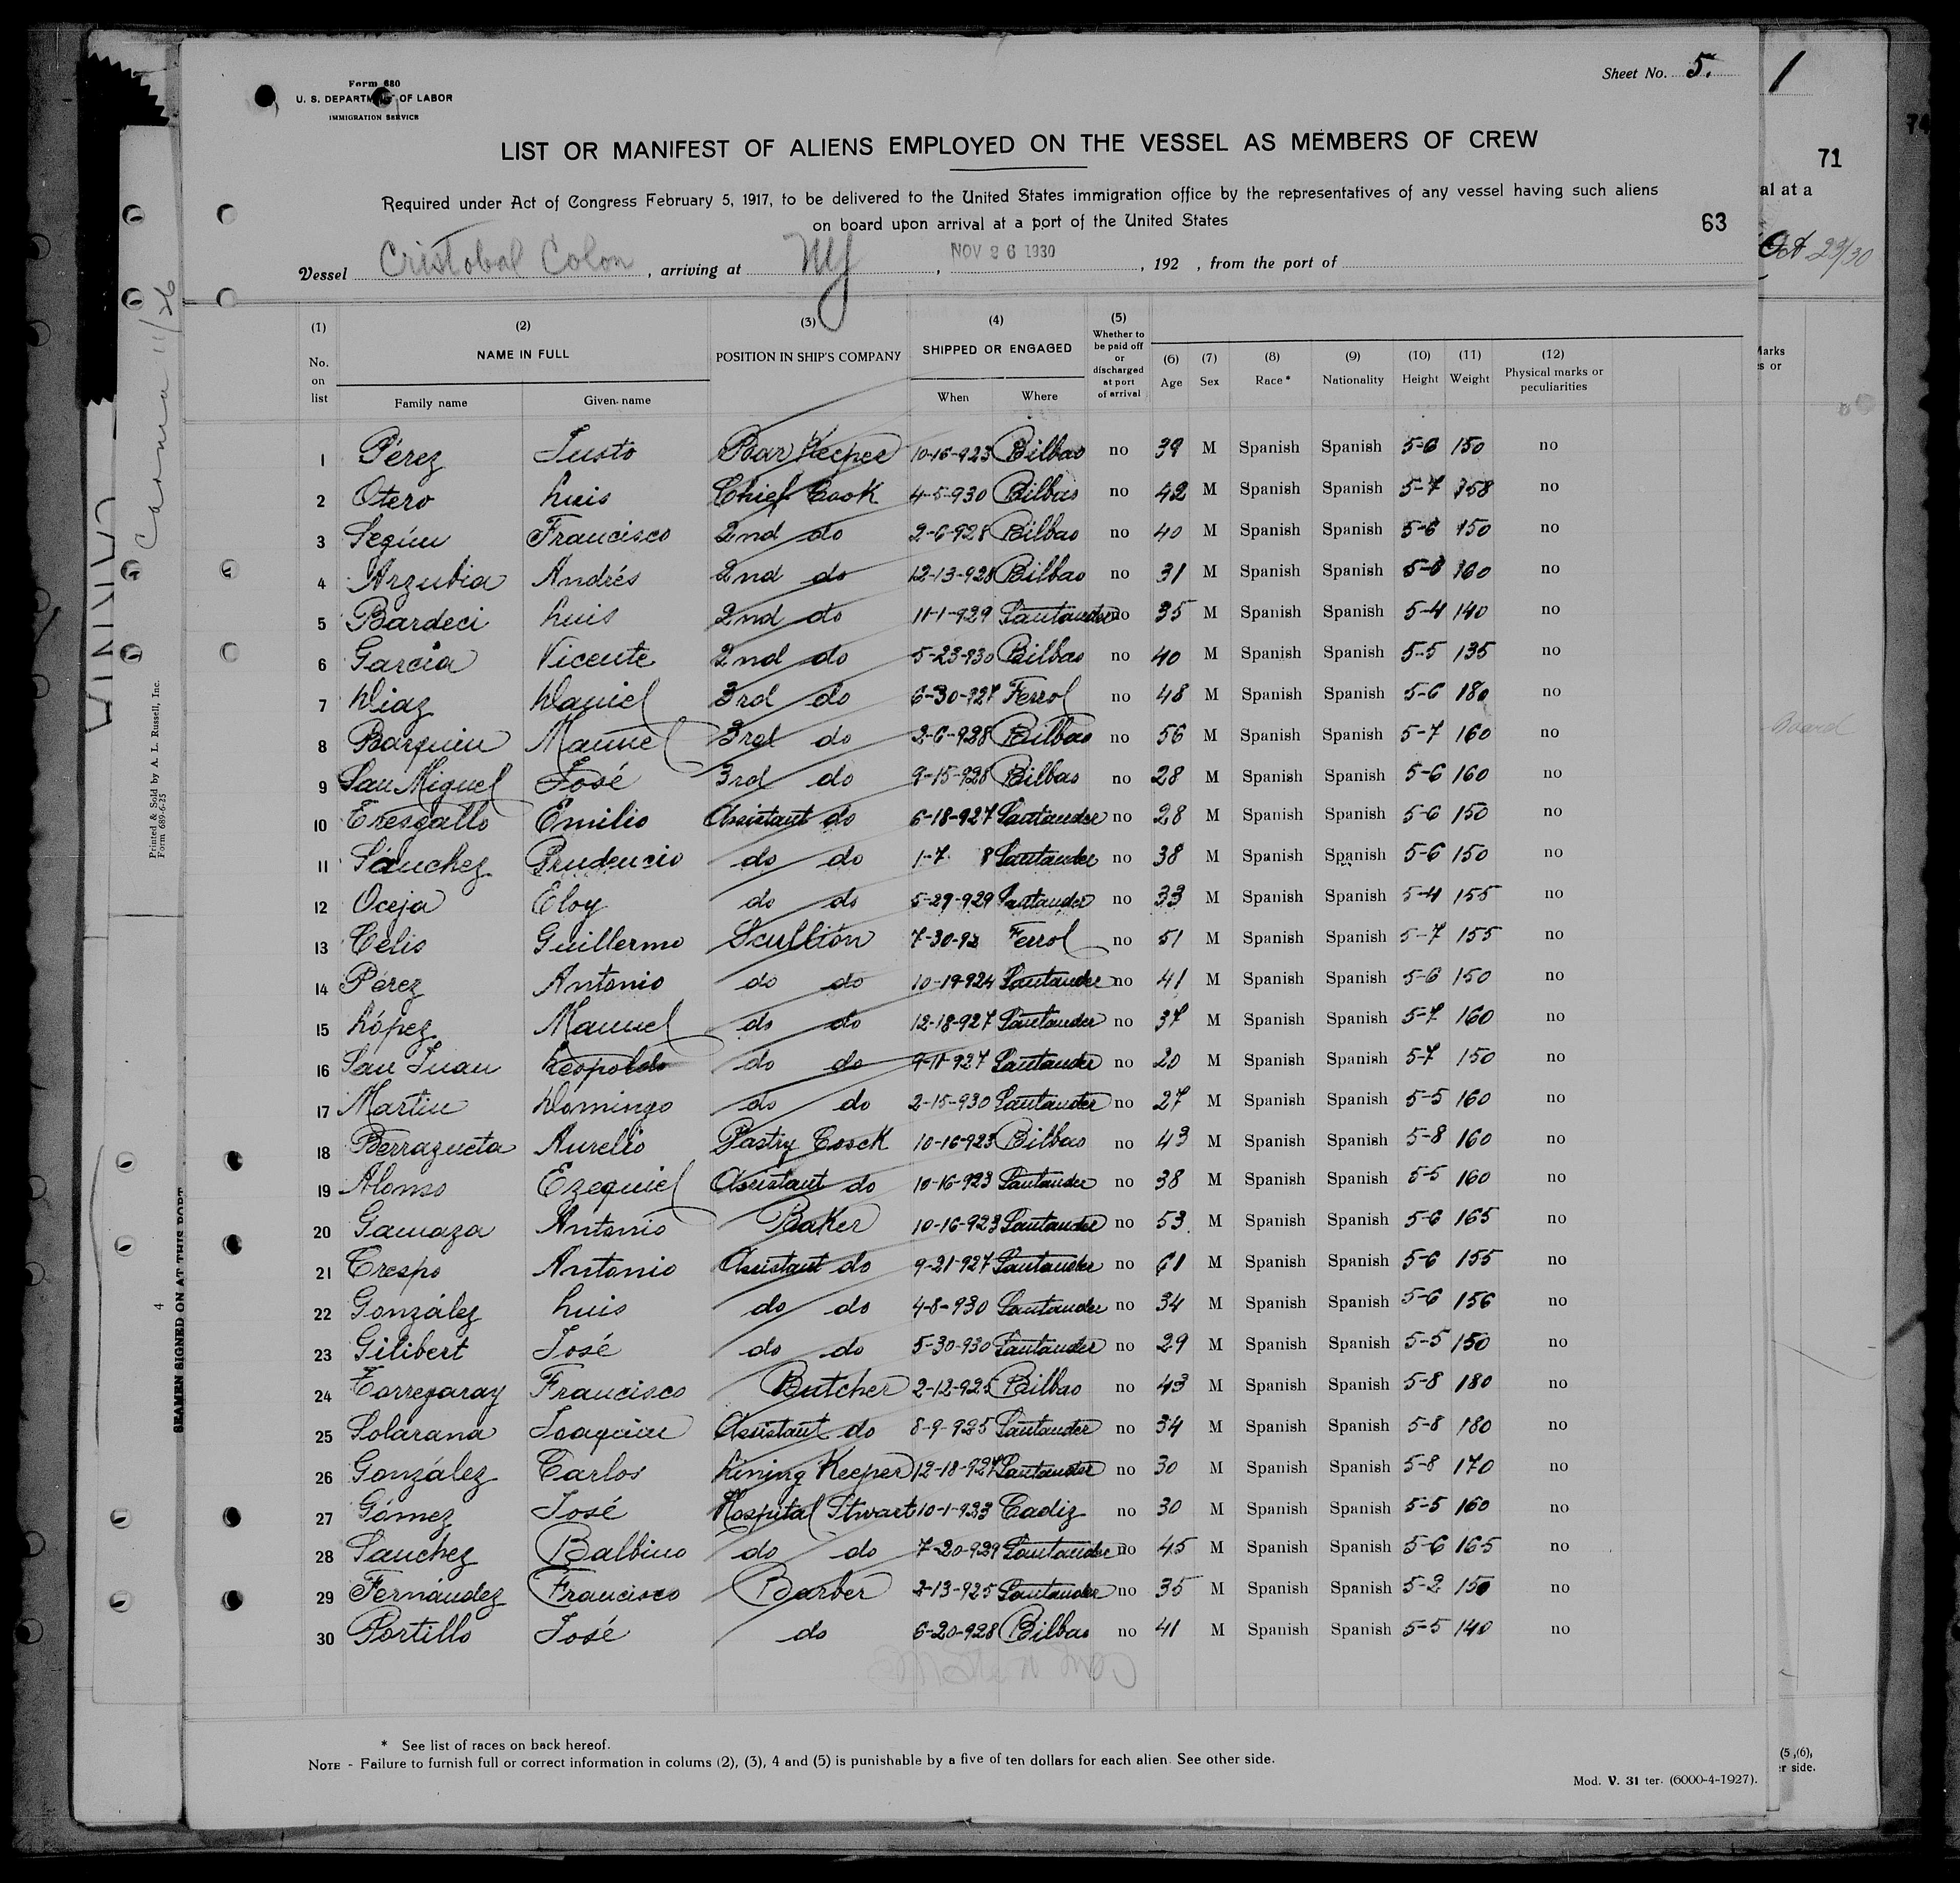 Form 680
U. S. DEPARTMENT OF LABOR
IMMIGRATION SERVICE
Sheet No. 5.
1
71
LIST OR MANIFEST OF ALIENS EMPLOYED ON THE VESSEL AS MEMBERS OF CREW
Required under Act of Congress February 5, 1917, to be delivered to the United States immigration office by the representatives of any vessel having such aliens
on board upon arrival at a port of the United States
63
al at a
Oct 29/30
Vessel Cristobal Colon, arriving at NY, NOV 26 1930, 192 , from the port of
(1) No. on list
(2) NAME IN FULL Family name Given name
(3) POSITION IN SHIP'S COMPANY
(4) SHIPPED OR ENGAGED When Where
(5) Whether to be paid off or discharged at port of arrival
(6) Age
(7) Sex
(8) Race *
(9) Nationality
(10) Height
(11) Weight
(12) Physical marks or peculiarities
1 Pérez Justo Bar Keeper 10-16-923 Bilbao no 39 M Spanish Spanish 5-6 150 no
2 Otero Luis Chief Cook 4-5-930 Bilbao no 42 M Spanish Spanish 5-7 158 no
3 Seqúin Francisco 2nd do 2-6-928 Bilbao no 40 M Spanish Spanish 5-6 150 no
4 Arzubia Andrés 2nd do 12-13-928 Bilbao no 31 M Spanish Spanish 5-8 160 no
5 Bardeci Luis 2nd do 11-1-929 Santander no 35 M Spanish Spanish 5-4 140 no
6 García Vicente 2nd do 5-23-930 Bilbao no 40 M Spanish Spanish 5-5 135 no
7 Diaz Daniel 3rd do 6-30-927 Ferrol no 48 M Spanish Spanish 5-6 180 no
8 Barquin Manuel 3rd do 2-6-928 Bilbao no 56 M Spanish Spanish 5-7 160 no
9 San Miguel José 3rd do 9-15-928 Bilbao no 28 M Spanish Spanish 5-6 160 no
10 Tresgallo Emilio Assistant do 6-18-927 Santander no 28 M Spanish Spanish 5-6 150 no
11 Sánchez Prudencio do do 1-7 8 Santander no 38 M Spanish Spanish 5-6 150 no
12 Oceja Eloy do do 5-29-929 Santander no 33 M Spanish Spanish 5-4 155 no
13 Celis Guillermo Scullion 7-30-92 Ferrol no 51 M Spanish Spanish 5-7 155 no
14 Pérez Antonio do do 10-19-924 Santander no 41 M Spanish Spanish 5-6 150 no
15 López Manuel do do 12-18-927 Santander no 37 M Spanish Spanish 5-7 160 no
16 San Juan Leopoldo do do 9-11-927 Santander no 20 M Spanish Spanish 5-7 150 no
17 Martin Domingo do do 2-15-930 Santander no 27 M Spanish Spanish 5-5 160 no
18 Berrazueta Aurelio Pastry Coock 10-16-923 Bilbao no 43 M Spanish Spanish 5-8 160 no
19 Alonso Ezequiel Assistant do 10-16-923 Santander no 38 M Spanish Spanish 5-5 160 no
20 Gamaza Antonio Baker 10-16-923 Santander no 53 M Spanish Spanish 5-6 165 no
21 Crespo Antonio Assistant do 9-21-927 Santander no 61 M Spanish Spanish 5-6 155 no
22 González Luis do do 4-8-930 Santander no 34 M Spanish Spanish 5-6 156 no
23 Gilibert José do do 5-30-930 Santander no 29 M Spanish Spanish 5-5 150 no
24 Torregaray Francisco Butcher 2-12-925 Bilbao no 43 M Spanish Spanish 5-8 180 no
25 Solarana Joaquin Assistant do 8-9-925 Santander no 34 M Spanish Spanish 5-8 180 no
26 González Carlos Lining Keeper 12-18-927 Santander no 30 M Spanish Spanish 5-8 170 no
27 Gómez José Hospital Stwart 10-1-923 Cadiz no 30 M Spanish Spanish 5-5 160 no
28 Sanchez Balbino do do 7-20-929 Santander no 45 M Spanish Spanish 5-6 165 no
29 Fernández Francisco Barber 2-13-925 Santander no 35 M Spanish Spanish 5-2 150 no
30 Portillo José do 6-20-928 Bilbao no 41 M Spanish Spanish 5-5 140 no
* See list of races on back hereof.
NOTE - Failure to furnish full or correct information in colums (2), (3), 4 and (5) is punishable by a five of ten dollars for each alien. See other side.
Mod. V. 31 ter. (6000-4-1927).
Marks
s or
Board
(5 ,(6),
er side.
Carinia 11/26
CARINTIA
Printed & Sold by A. L. Russell, Inc.
Form 689-6-25
4
SEAMEN SIGNED ON AT THIS PORT